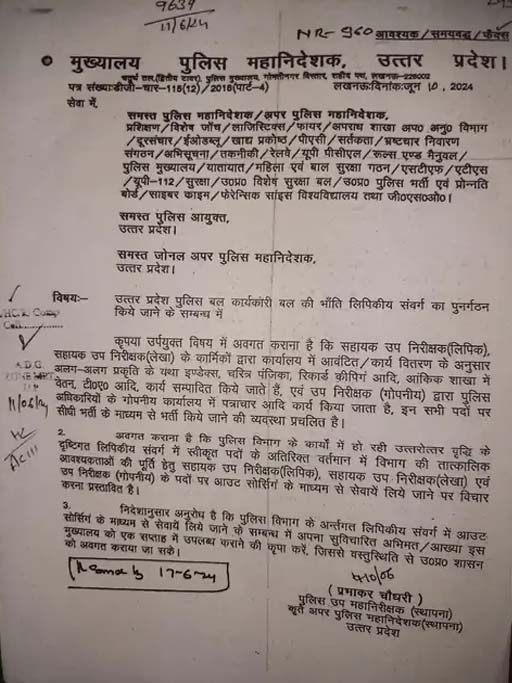 9634
11/6/24
NR-960 आवश्यक/समयबद्ध/फैक्स
मुख्यालय पुलिस महानिदेशक, उत्तर प्रदेश।
चतुर्थ तल,(द्वितीय टावर), पुलिस मुख्यालय, गोमतीनगर विस्तार, शहीद पथ, लखनऊ-226002
पत्र संख्याःडीजी-चार-115(12)/2016(पार्ट-4) लखनऊःदिनांकःजून 10, 2024
सेवा में,
समस्त पुलिस महानिदेशक/अपर पुलिस महानिदेशक,
प्रशिक्षण/विशेष जाँच/लाजिस्टिक्स/फायर/अपराध शाखा अप० अनु० विभाग
/दूरसंचार/ईओडब्लू/खाद्य प्रकोष्ठ/पीएसी/सर्तकता/भ्रष्टचार निवारण
संगठन/अभिसूचना/तकनीकी/रेलवे/यूपी पीसीएल/रूल्स एण्ड मैनुवल/
पुलिस मुख्यालय/यातायात/महिला एवं बाल सुरक्षा गठन/एसटीएफ/एटीएस
/यूपी-112/सुरक्षा/उ०प्र० विशेष सुरक्षा बल/उ०प्र० पुलिस भर्ती एवं प्रोन्नति
बोर्ड/साइबर काइम/फोरेन्सिक सांइस विश्वविद्यालय तथा जी०एस०ओ०।
समस्त पुलिस आयुक्त,
उत्तर प्रदेश।
समस्त जोनल अपर पुलिस महानिदेशक,
उत्तर प्रदेश।
विषयः- उत्तर प्रदेश पुलिस बल कार्यकारी बल की भाँति लिपिकीय संवर्ग का पुनर्गठन
किये जाने के सम्बन्ध में
कृपया उर्पयुक्त विषय में अवगत कराना है कि सहायक उप निरीक्षक(लिपिक),
सहायक उप निरीक्षक(लेखा) के कार्मिकों द्वारा कार्यालय में आवंटित/कार्य वितरण के अनुसार
अलग-अलग प्रकृति के यथा इण्डेक्स, चरित्र पंजिका, रिकार्ड कीपिंग आदि, आंकिक शाखा में
वेतन, टी०ए० आदि, कार्य सम्पादित किये जाते हैं, एवं उप निरीक्षक (गोपनीय) द्वारा पुलिस
अधिकारियों के गोपनीय कार्यालय में पत्राचार आदि कार्य किया जाता है, इन सभी पदों पर
सीधी भर्ती के माध्यम से भर्ती किये जाने की व्यवस्था प्रचलित है।
2. अवगत कराना है कि पुलिस विभाग के कार्यो में हो रही उत्तरोत्तर वृद्धि के
दृष्टिगत लिपिकीय संवर्ग में स्वीकृत पदों के अतिरिक्त वर्तमान में विभाग की तात्कालिक
आवश्यकताओं की पूर्ति हेतु सहायक उप निरीक्षक(लिपिक), सहायक उप निरीक्षक(लेखा) एवं
उप निरीक्षक (गोपनीय) के पदों पर आउट सोर्सिग के माध्यम से सेवायें लिये जाने पर विचार
करना प्रस्तावित है।
3. निदेशानुसार अनुरोध है कि पुलिस विभाग के अर्न्तगत लिपिकीय संवर्ग में आउट
सोर्सिग के माध्यम से सेवायें लिये जाने के सम्बन्ध में अपना सुविचारित अभिमत/आख्या इस
मुख्यालय को एक सप्ताह में उपलब्ध कराने की कृपा करें, जिससे वस्तुस्थिति से उ०प्र० शासन
को अवगत कराया जा सके।
17-6-24
(प्रभाकर चौधरी)
पुलिस उप महानिरीक्षक (स्थापना)
कृते अपर पुलिस महानिदेशक(स्थापना)
उत्तर प्रदेश
A.D.G.
11/06/24